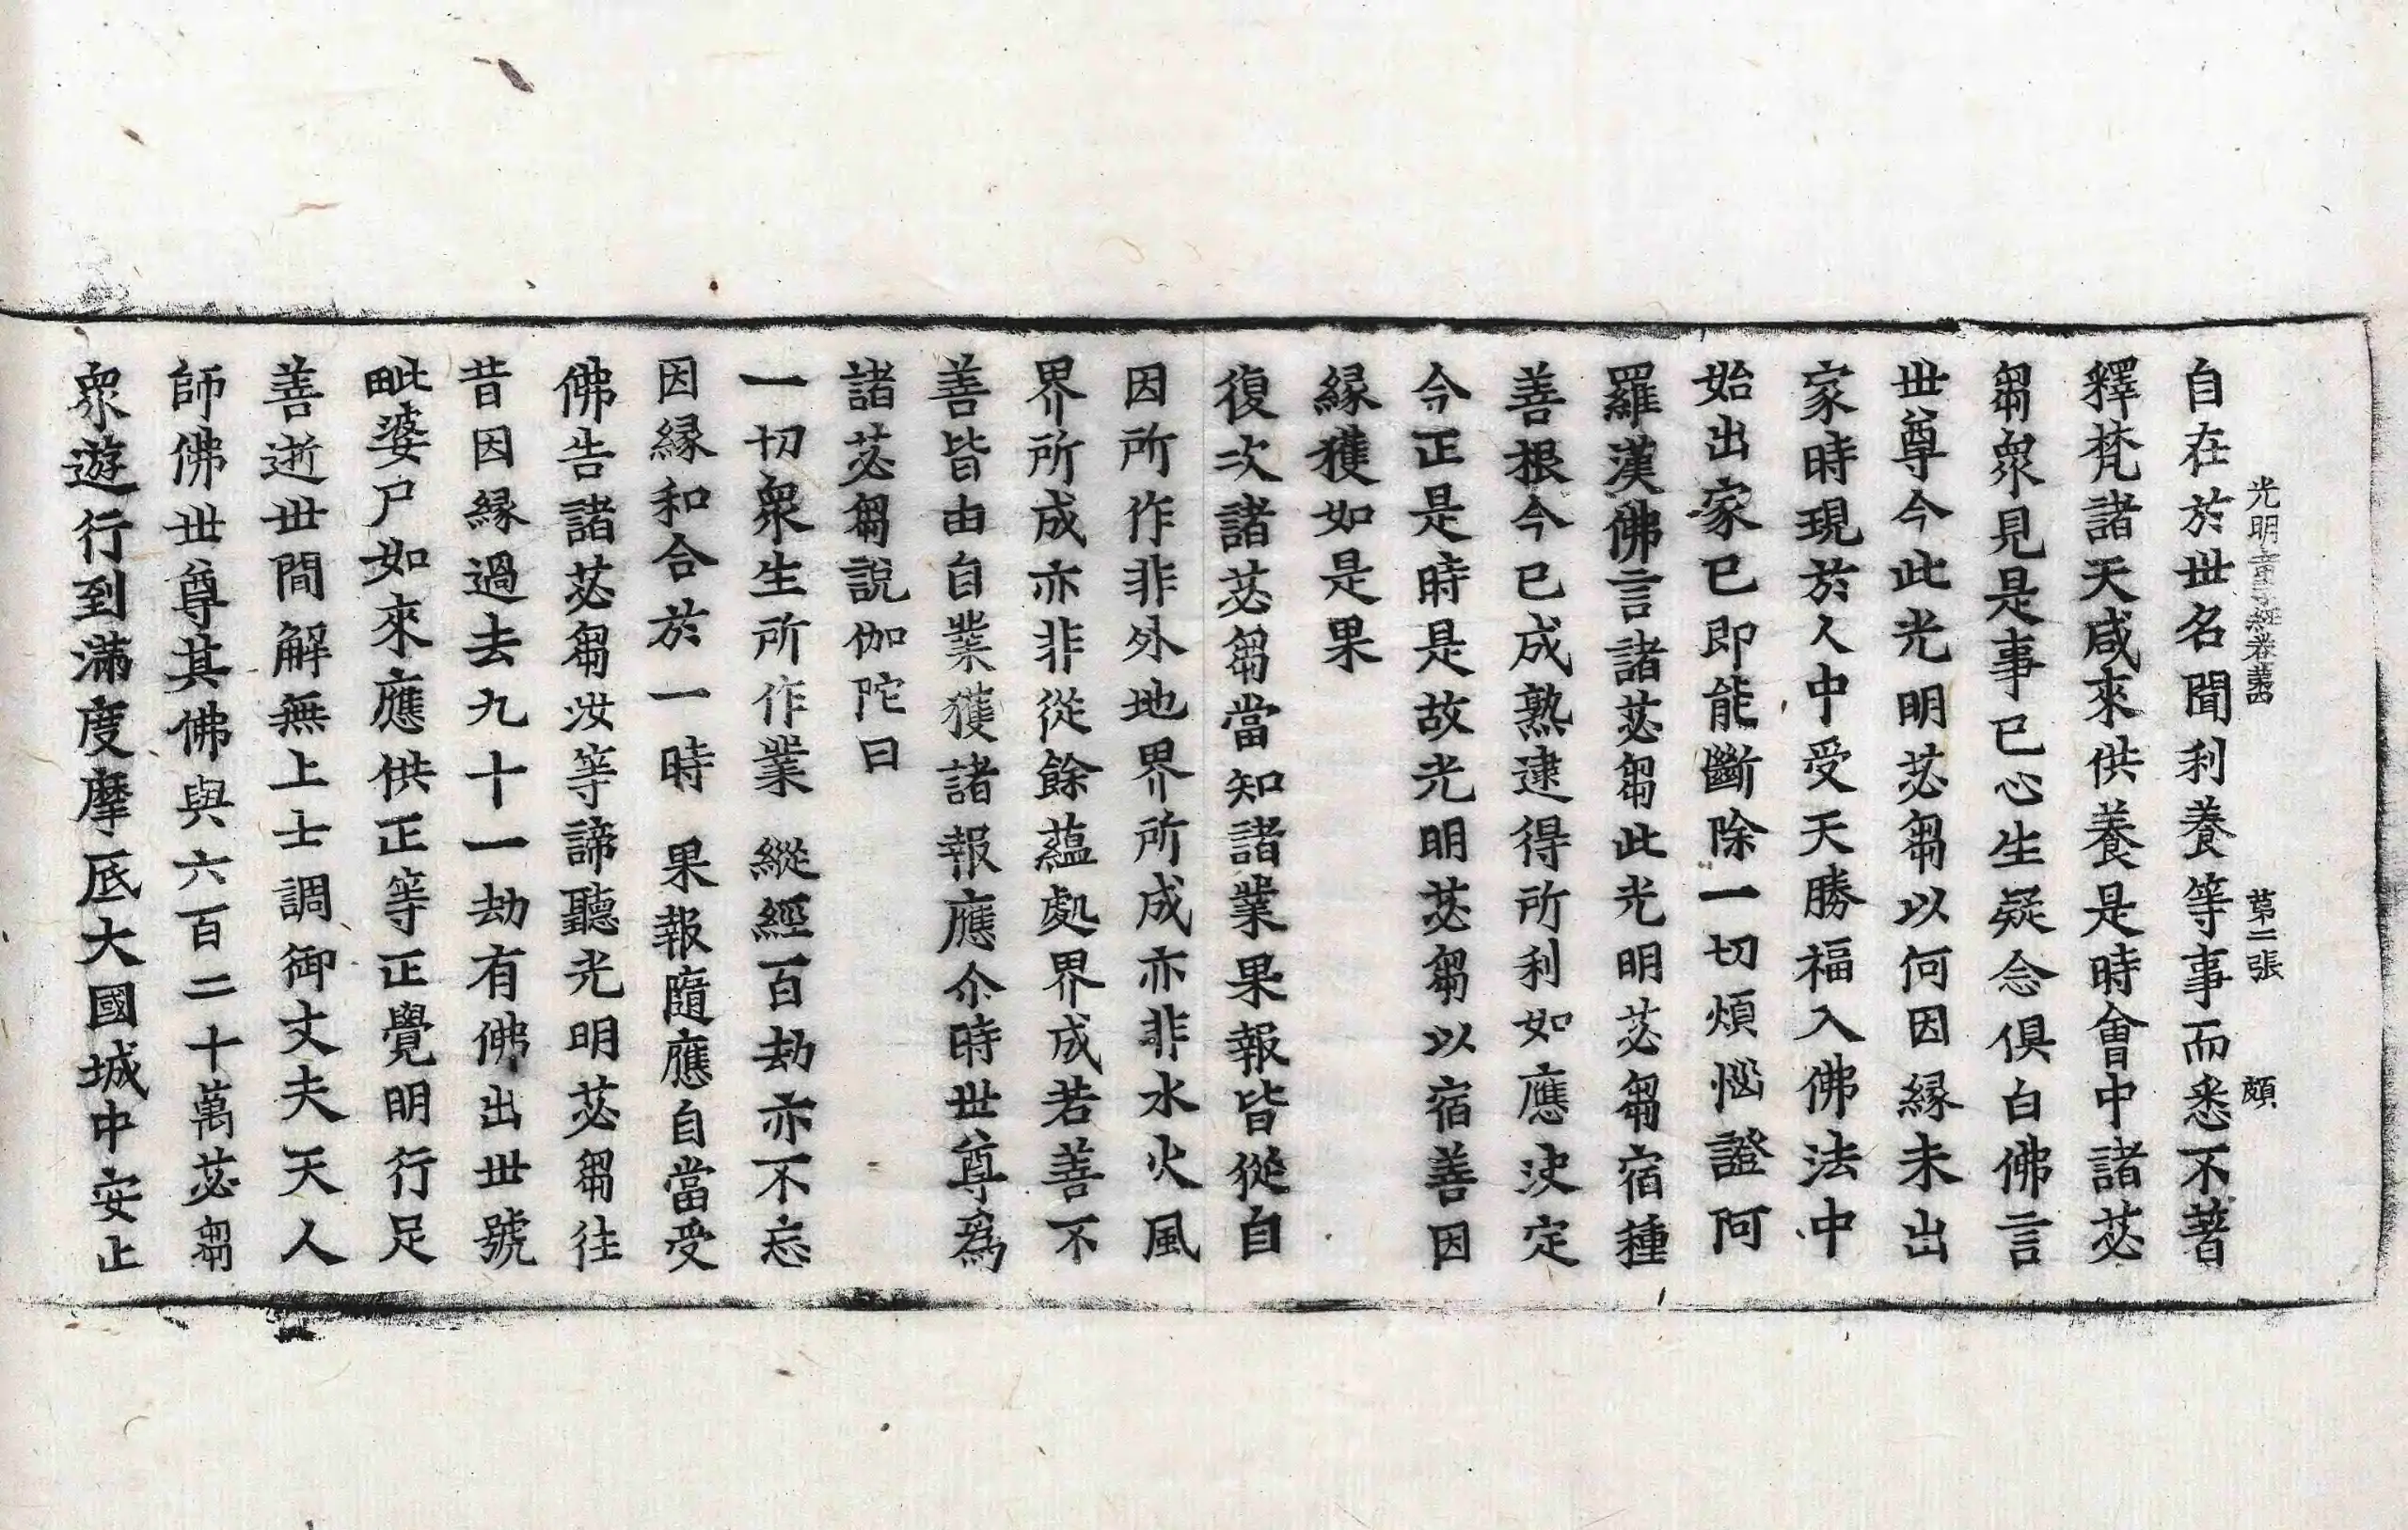 光明童子經卷苐四 苐二張 頗
自在於世名聞利養等事而悉不著
釋梵諸天咸來供養是時會中諸苾
芻衆見是事已心生疑念俱白佛言
世尊今此光明苾芻以何因縁未出
家時現於人中受天勝福入佛法中
始出家已即能斷除一切煩惱證阿
羅漢佛言諸苾芻此光明苾芻宿種
善根今已成熟逮得所利如應決定
今正是時是故光明苾芻以宿善因
縁獲如是果
復次諸苾芻當知諸業果報皆從自
因所作非外地界所成亦非水火風
界所成亦非從餘蘊處界成若善不
善皆由自業獲諸報應尒時世尊爲
諸苾芻說伽陀曰
一切衆生所作業 縱經百劫亦不忘
因縁和合於一時 果報隨應自當受
佛告諸苾芻汝等諦聽光明苾芻往
昔因縁過去九十一劫有佛出世號
毗婆尸如來應供正等正覺明行足
善逝世間解無上士調御丈夫天人
師佛世尊其佛與六百二十萬苾芻
衆遊行到滿度摩底大國城中安止